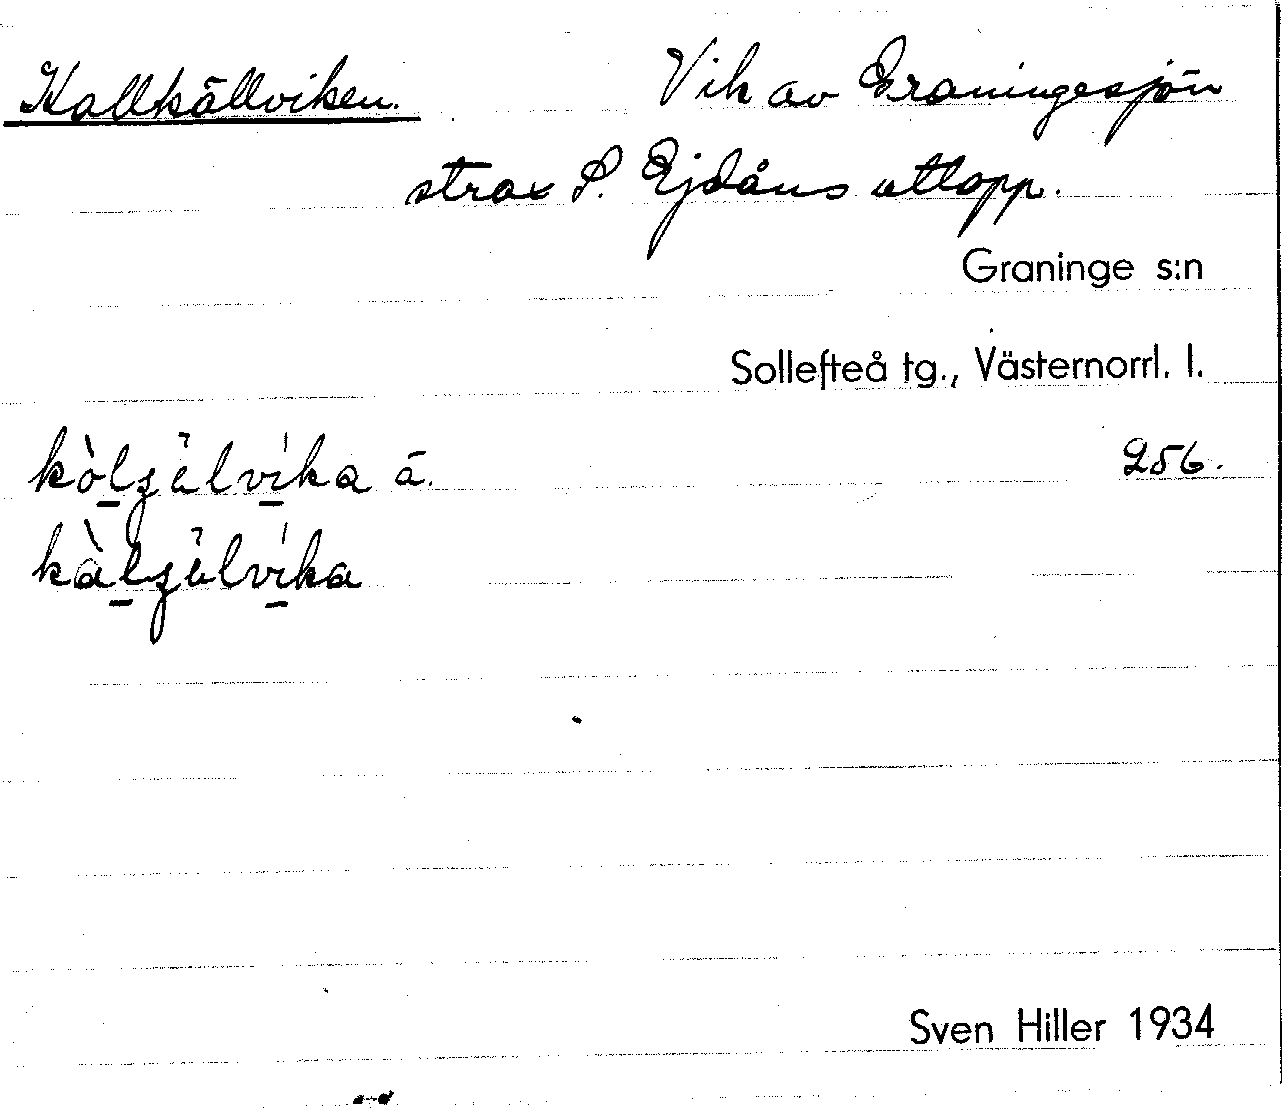 Kallkällviken. Vik av Graningesjön
strax S. Ejdåns utlopp.
Graninge s:n
Sollefteå tg., Västernorrl. l.
256.
Sven Hiller 1934